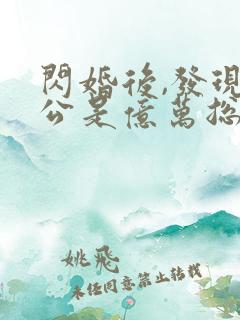 閃婚後,發現
公是億萬総
姚飛
未任同意禁止转载